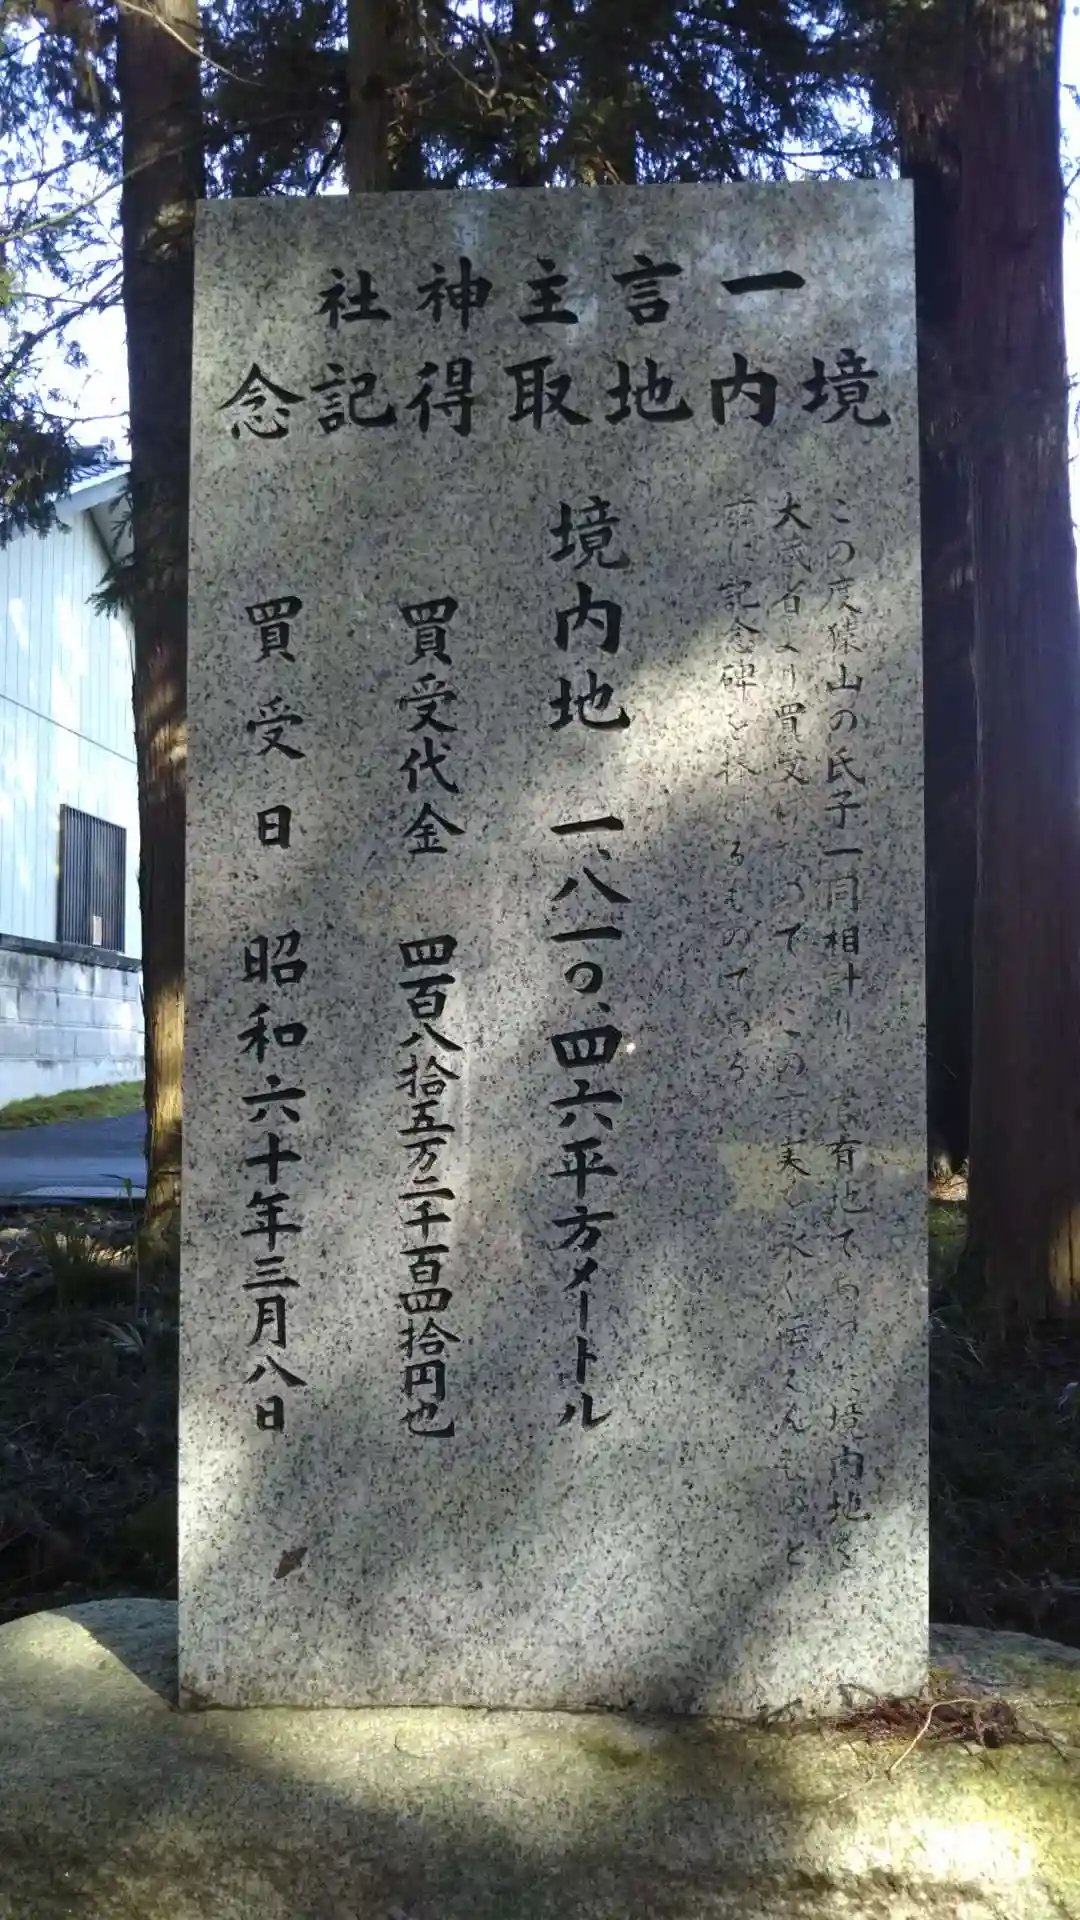 一言主神社
境内地取得記念
この度猿山の氏子一同相計り有地であった境内地を
大蔵省より買受けたのでこの事実を永くんものと
に記念碑をるものである
境内地　一、八一〇、四六平方メートル
買受代金　四百八拾五万二千百四拾円也
買受日　昭和六十年三月八日